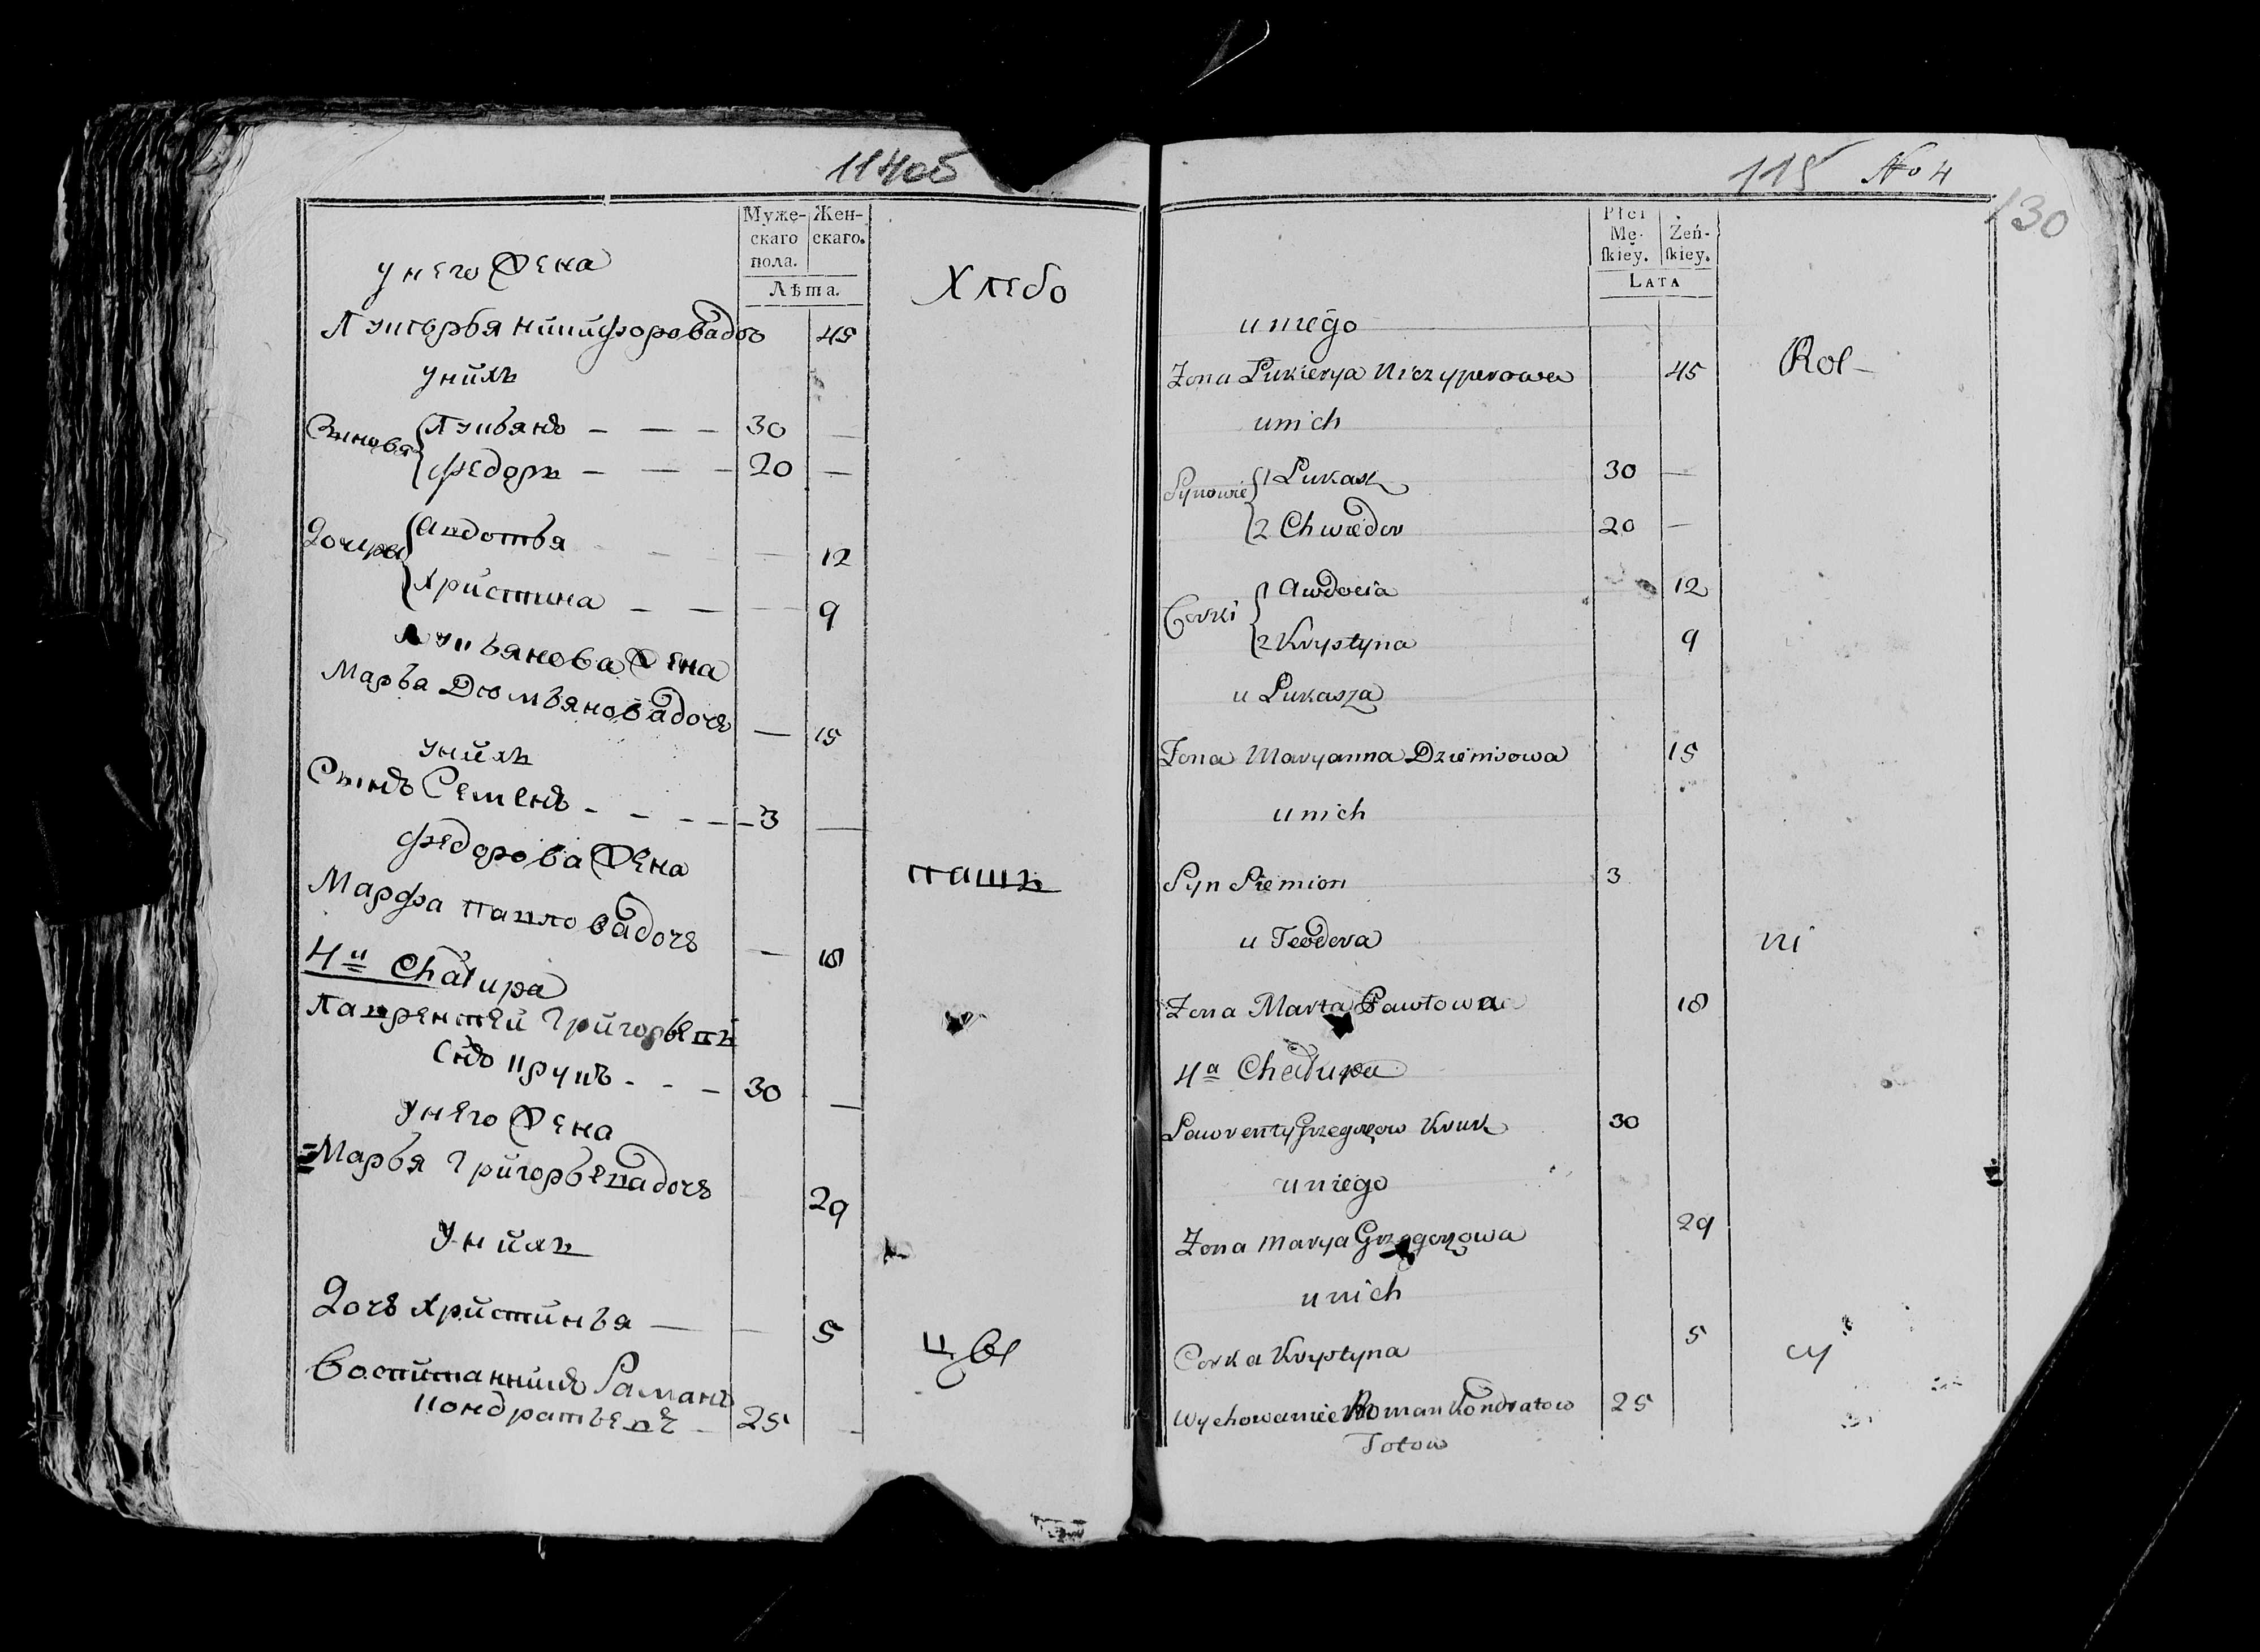 114об
Муже- Жен-
скаго скаго.
пола.
Лѣта.
у него жена
Хлебо
Лукерья Никифорова дочь 45
у них
Сыновья Лукьянъ — — — 30 —
Федоръ — — — 20 —
Дочери Авдотья — — 12
Христина — — — 9
Лукьянова жена
Марья Демьянова дочь — 15
у них
Сынъ Семенъ - - - - 3 —
Федорова жена
пашъ
Марфа Павлова дочь — 18
4я Chałupa
Лаврентей Григорьевъ
Снъ Крукъ - - - 30 —
у него жена
Марья Григорьева дочь 29
у них
Дочь Христинья — — 5
цы
Воспитанникъ Раманъ
Кондратьевъ 25 -
115 No 4
130
Płci
Mę- Żeń-
ſkiey. ſkiey.
LATA
u niego
Rol-
Zona Łukierya Niczyperowa 45
u nich
Synowie 1 Łukasz 30 —
2 Chwiedor 20 —
Corki 1 Awdocia 12
2 Krystyna 9
u Łukasza
Zona Maryanna Dziemisowa 15
u nich
Syn Siemion 3
u Teodora
ni
Zona Marta Pawłowa 18
4a Chałupa
Lawrenty Grzegorzow Kruk 30
u niego
Zona Marya Grzegorzowa 29
u nich
Corka Krystyna 5
cy
Wychowaniec Roman Kondratow 25